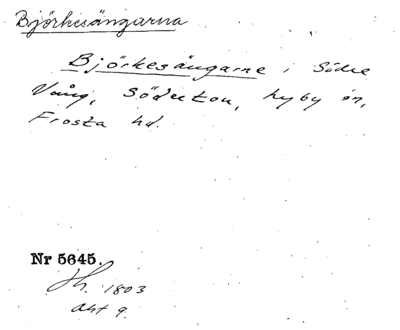 Björkesängarna
Björkesängarne i Södre
Vång, Södertou, Hyby sn,
Frosta hd.
Nr 5645.
Th. 1803
Akt 9.